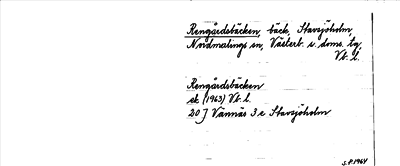 Rengårdsbäcken, bäck, Stavsjöholm,
Nordmalings sn, Västerb. s. doms. lg,
Vb. l.
Rengårdsbäcken
ek (1963) Vb. l.
20 J Vännäs 3 c Stavsjöholm
S.P. 1964